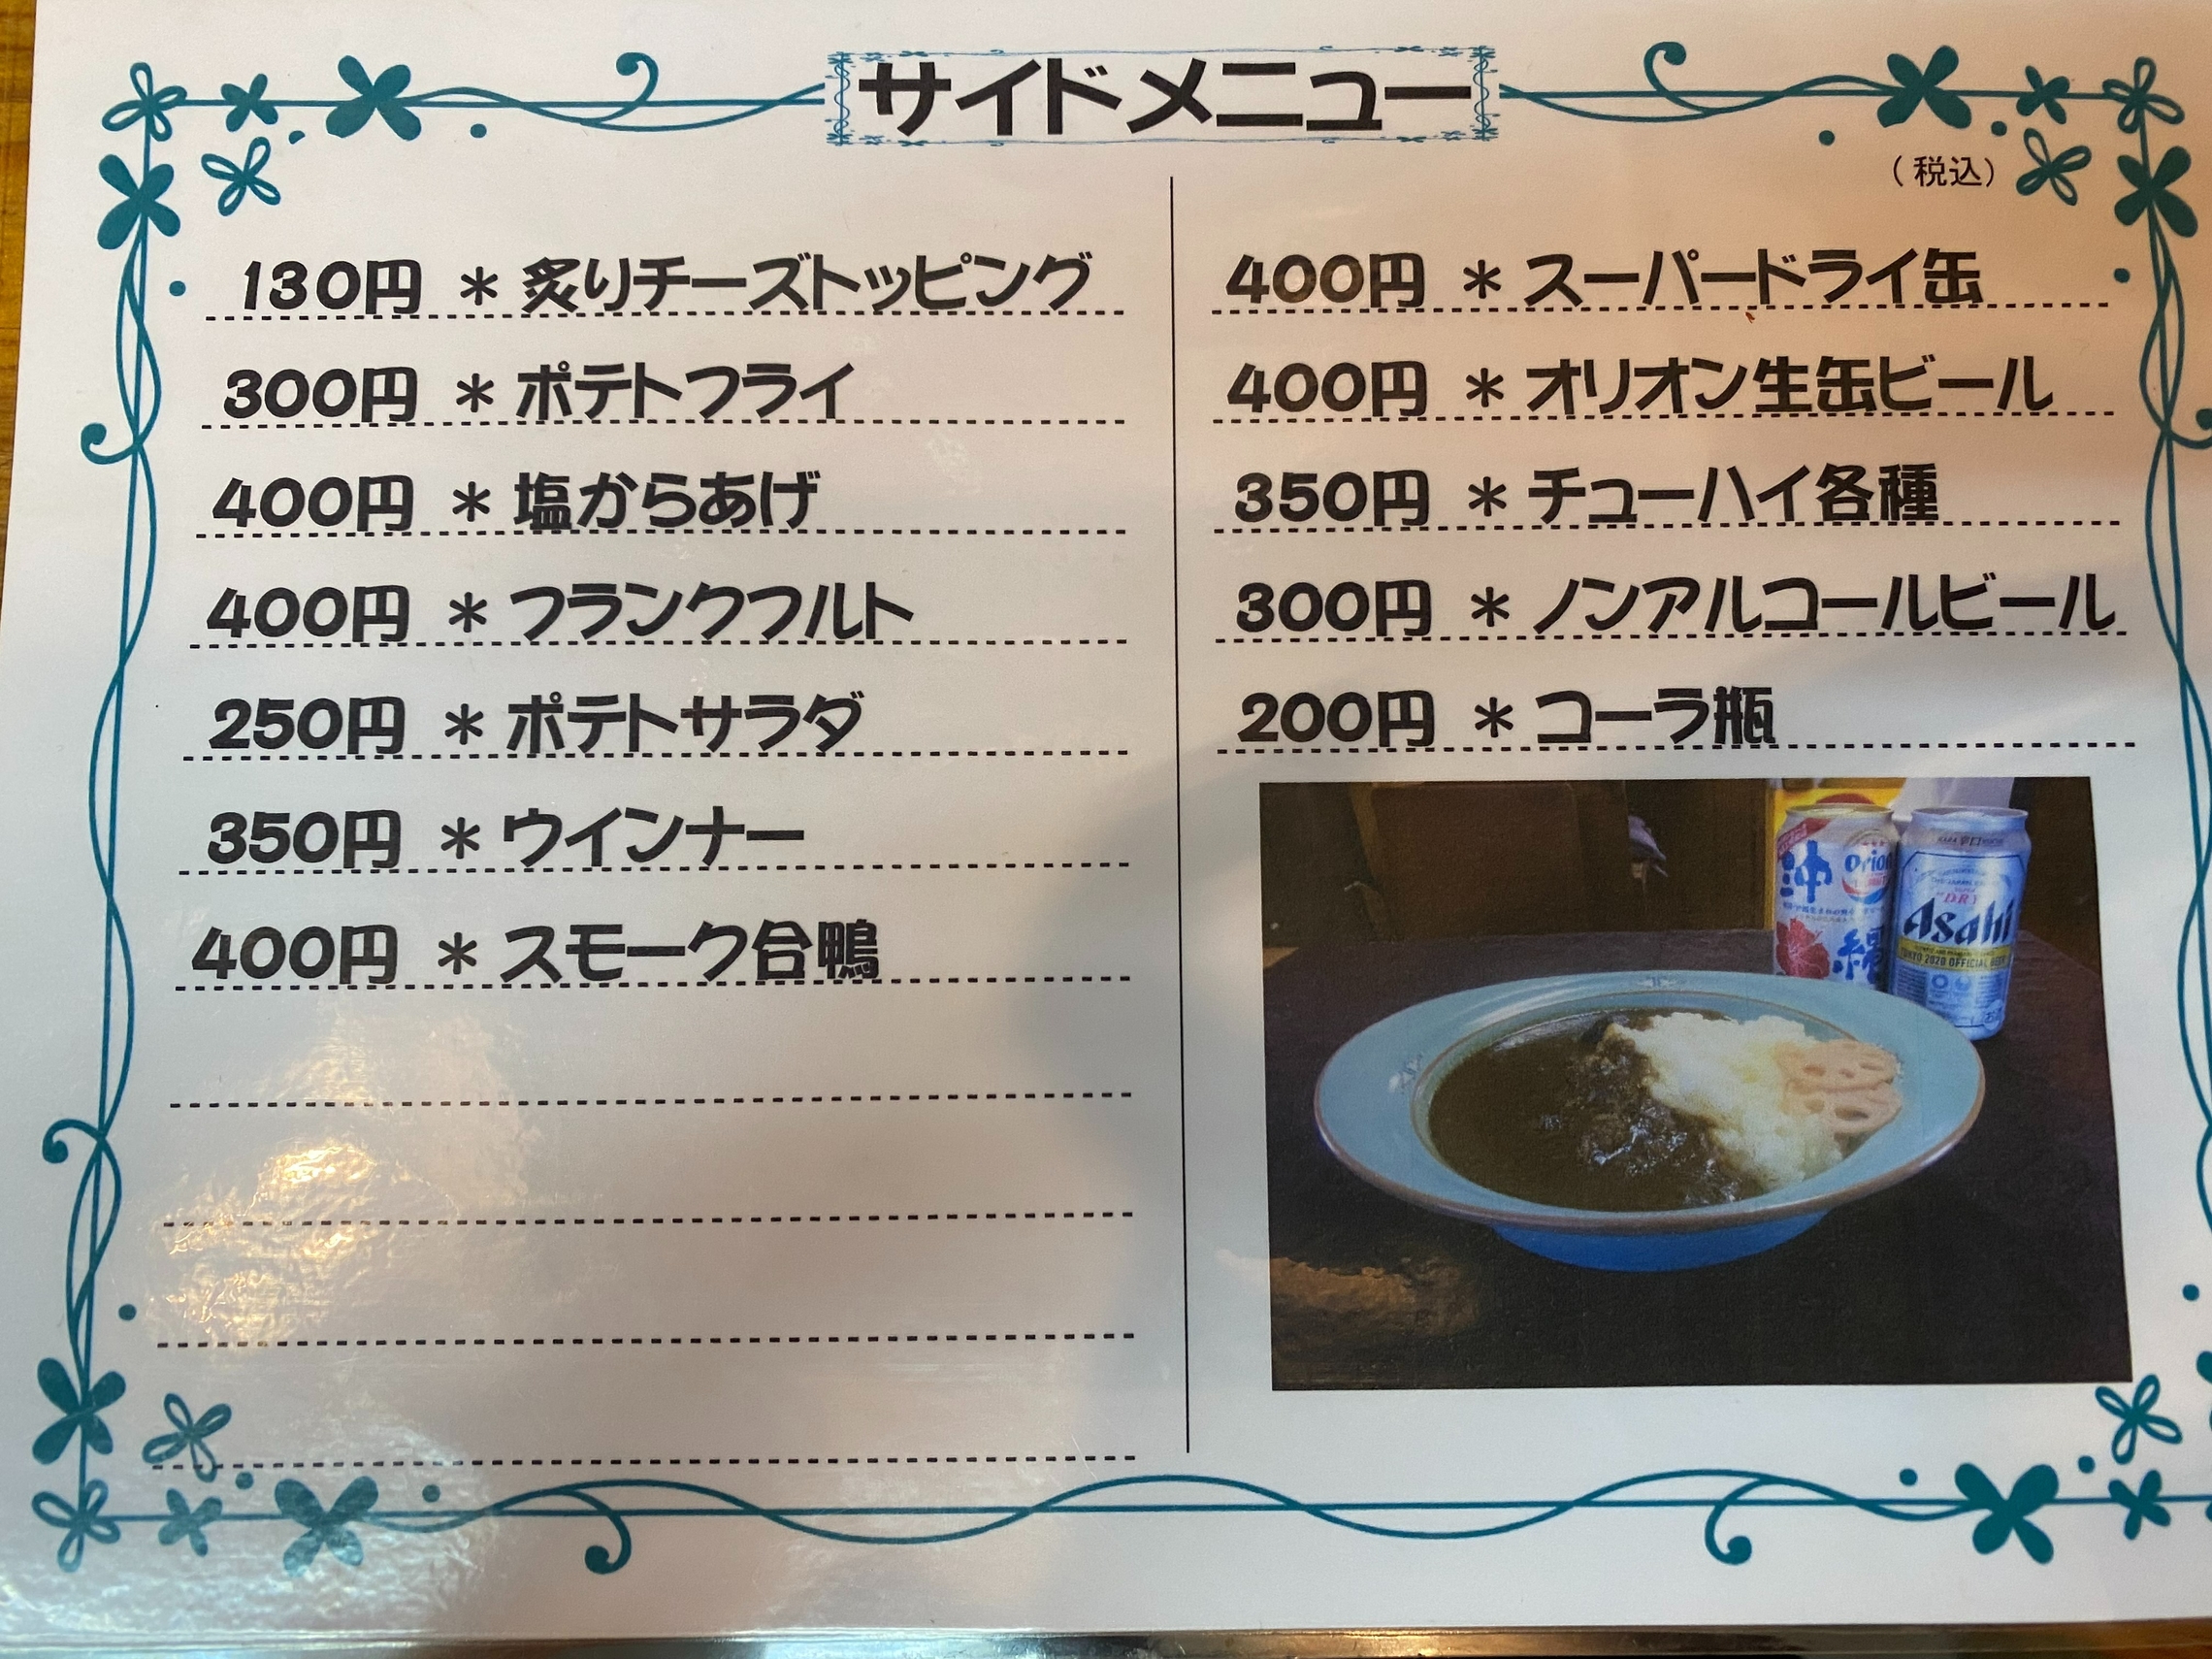 サイドメニュー
（税込）
130円 ＊炙りチーズトッピング
300円 ＊ポテトフライ
400円 ＊塩からあげ
400円 ＊フランクフルト
250円 ＊ポテトサラダ
350円 ＊ウインナー
400円 ＊スモーク合鴨
400円 ＊スーパードライ缶
400円 ＊オリオン生缶ビール
350円 ＊チューハイ各種
300円 ＊ノンアルコールビール
200円 ＊コーラ瓶
沖縄
DRY
Asahi
TOKYO 2020 OFFICIAL